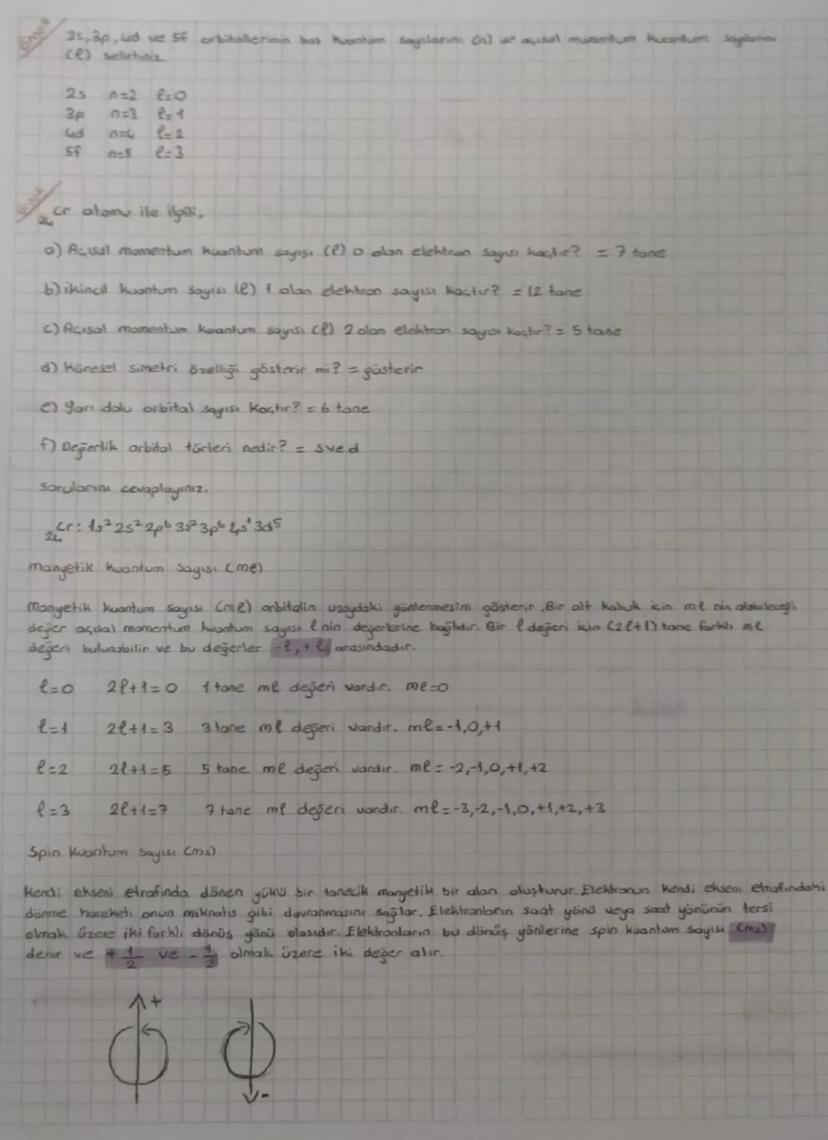 Örnek 2s, 3p, 4d ve 5f orbitallerinin baş kuantum sayılarını (n) ve açısal momentum kuantum sayılarını
(l) belirtiniz
2s n=2 l=0
3p n=3 l=1
4d n=4 l=2
5f n=5 l=3
Örnek
24Cr atomu ile ilgili,
a) Açısal momentum kuantum sayısı (l) 0 olan elektron sayısı kaçtır? = 7 tane
b) ikincil kuantum sayısı (l) 1 olan elektron sayısı kaçtır? = 12 tane
c) Açısal momentum kuantum sayısı (l) 2 olan elektron sayısı kaçtır? = 5 tane
d) Küresel simetri özelliği gösterir mi? = gösterir
e) Yarı dolu orbital sayısı kaçtır? = 6 tane
f) Değerlik orbital türleri nedir? = s ve d
Sorularını cevaplayınız.
24Cr: 1s² 2s² 2p⁶ 3s² 3p⁶ 4s¹ 3d⁵
Manyetik kuantum sayısı (ml)
Manyetik kuantum sayısı (ml) orbitalin uzaydaki yönlenmesini gösterir. Bir alt kabuk için ml nin alabileceği
değer açısal momentum kuantum sayısı l nin değerlerine bağlıdır. Bir l değeri için (2l+1) tane farklı ml
değeri bulunabilir ve bu değerler -l, +l arasındadır.
l=0 2l+1=0 1 tane ml değeri vardır. ml=0
l=1 2l+1=3 3 tane ml değeri vardır. ml=-1,0,+1
l=2 2l+1=5 5 tane ml değeri vardır. ml=-2,-1,0,+1,+2
l=3 2l+1=7 7 tane ml değeri vardır. ml=-3,-2,-1,0,+1,+2,+3
Spin kuantum sayısı (ms)
Kendi ekseni etrafında dönen yüklü bir tanecik manyetik bir alan oluşturur. Elektronun kendi ekseni etrafındaki
dönme hareketi onun mıknatıs gibi davranmasını sağlar. Elektronların saat yönü veya saat yönünün tersi
olmak üzere iki farklı dönüş yönü olasıdır. Elektronların bu dönüş yönlerine spin kuantum sayısı (ms)
denir ve +1/2 ve -1/2 olmak üzere iki değer alır.
+ -